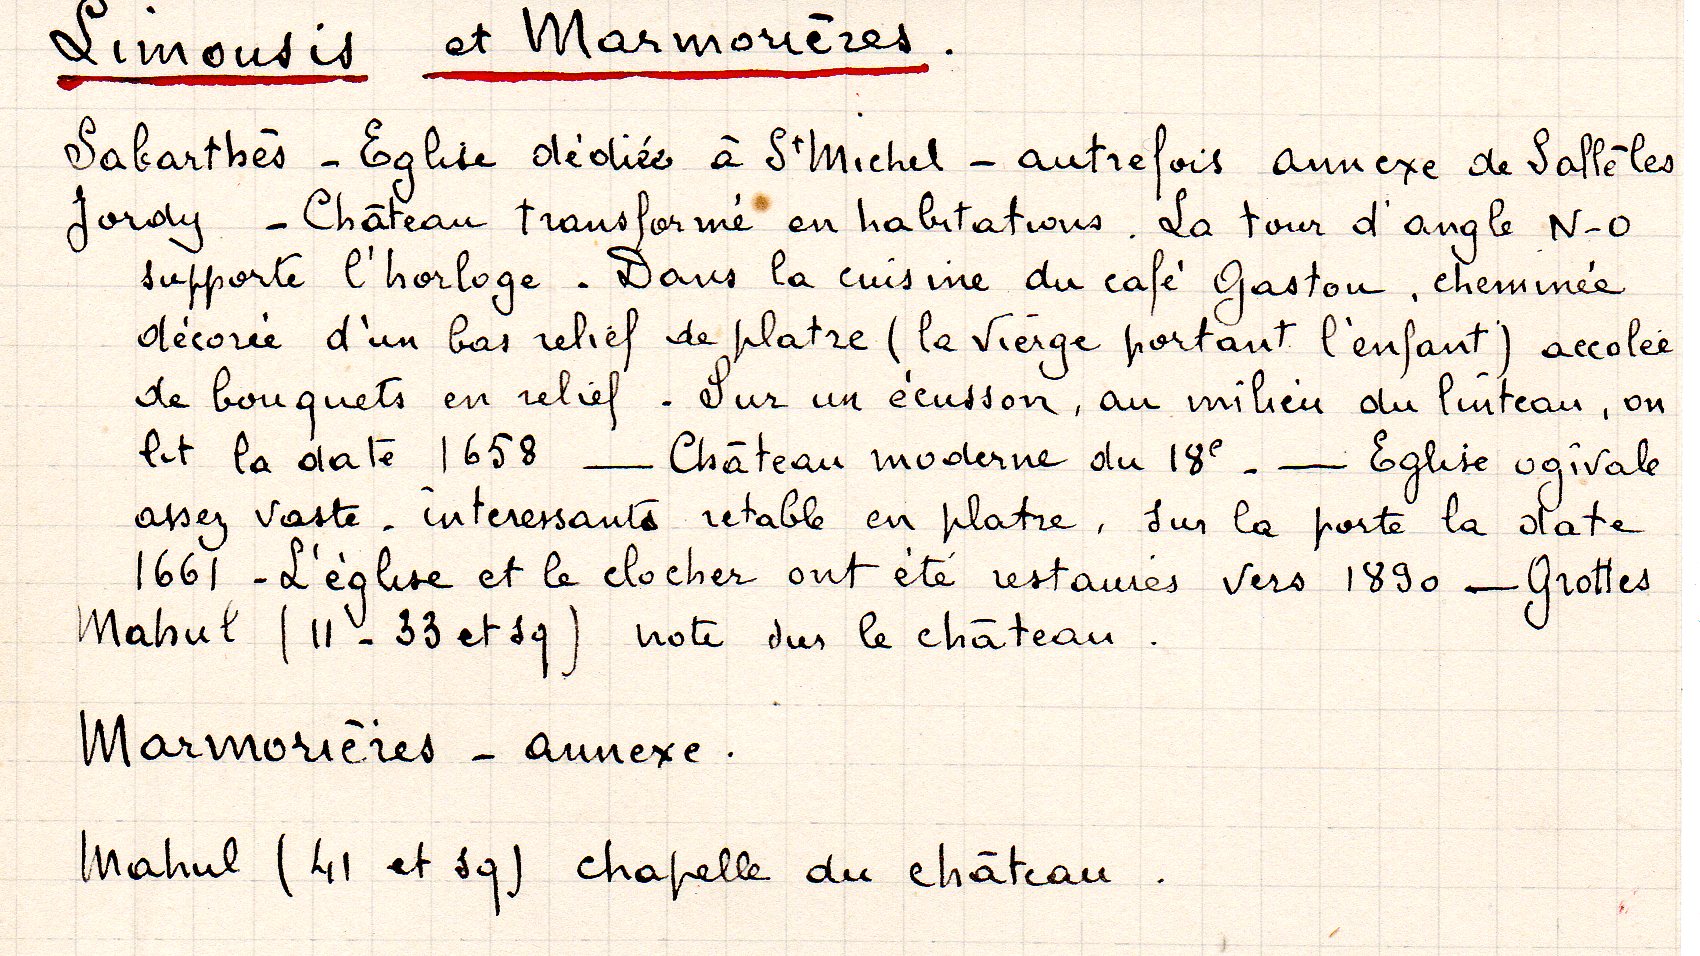 Limousis et Marmorières.
Sabarthès - Eglise dédiée à St Michel - autrefois annexe de Sallèles
Jordy - Château transformé en habitations. La tour d'angle N-O
supporte l'horloge. Dans la cuisine du café Gaston, cheminée
décorée d'un bas relief de platre (la vierge portant l'enfant) accolée
de bouquets en relief. Sur un écusson, au milieu du linteau, on
lit la date 1658 — Château moderne du 18e. — Eglise ogivale
assez vaste. interessants retable en platre, sur la porte la date
1661 - L'église et le clocher ont été restaurés vers 1890 — Grottes
Mahul (11 - 33 et sq) note sur le château.
Marmorières - annexe.
Mahul (41 et sq) chapelle du château.